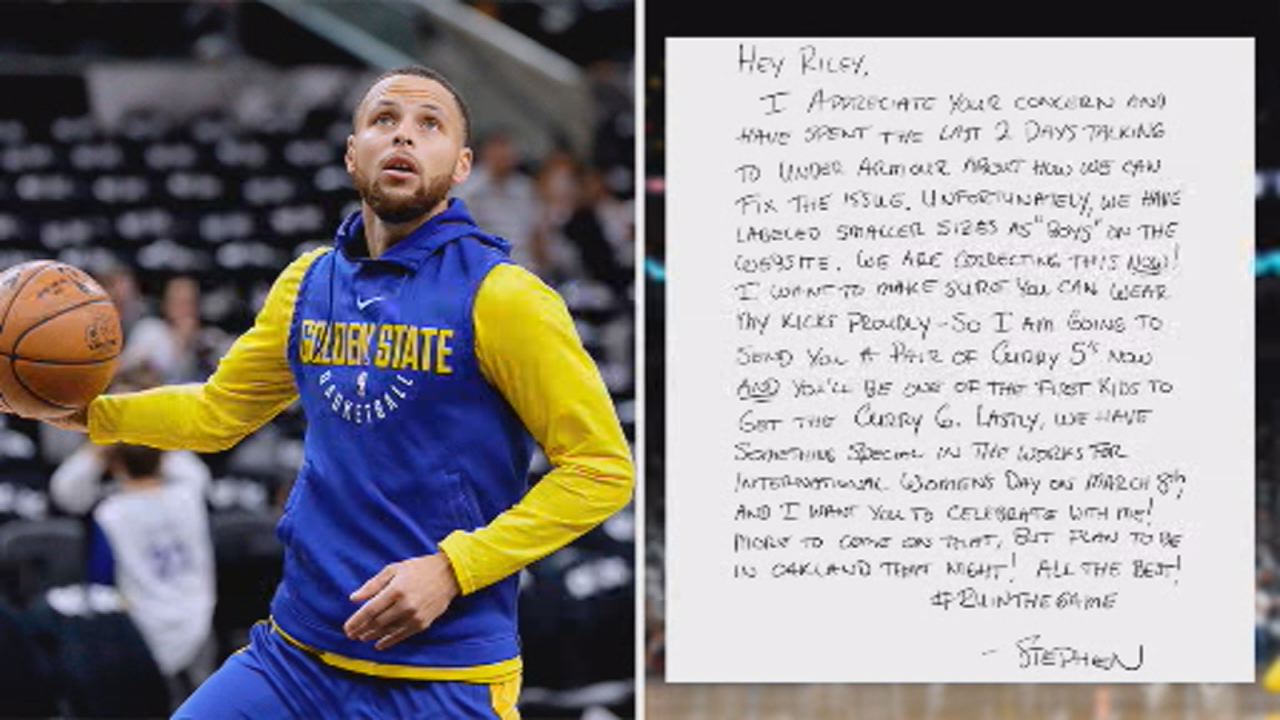 GOLDEN STATE
BASKETBALL
HEY RILEY,
I APPRECIATE YOUR CONCERN AND
HAVE SPENT THE LAST 2 DAYS TALKING
TO UNDER ARMOUR ABOUT HOW WE CAN
FIX THE ISSUE. UNFORTUNATELY, WE HAVE
LABELED SMALLER SIZES AS "BOYS" ON THE
WEBSITE. WE ARE CORRECTING THIS NOW!
I WANT TO MAKE SURE YOU CAN WEAR
MY KICKS PROUDLY - SO I AM GOING TO
SEND YOU A PAIR OF CURRY 5'S NOW
AND YOU'LL BE ONE OF THE FIRST KIDS TO
GET THE CURRY 6. LASTLY, WE HAVE
SOMETHING SPECIAL IN THE WORKS FOR
INTERNATIONAL WOMEN'S DAY ON MARCH 8th,
AND I WANT YOU TO CELEBRATE WITH ME!
MORE TO COME ON THAT, BUT PLAN TO BE
IN OAKLAND THAT NIGHT! ALL THE BEST!
#RUINTHEGAME
- STEPHEN